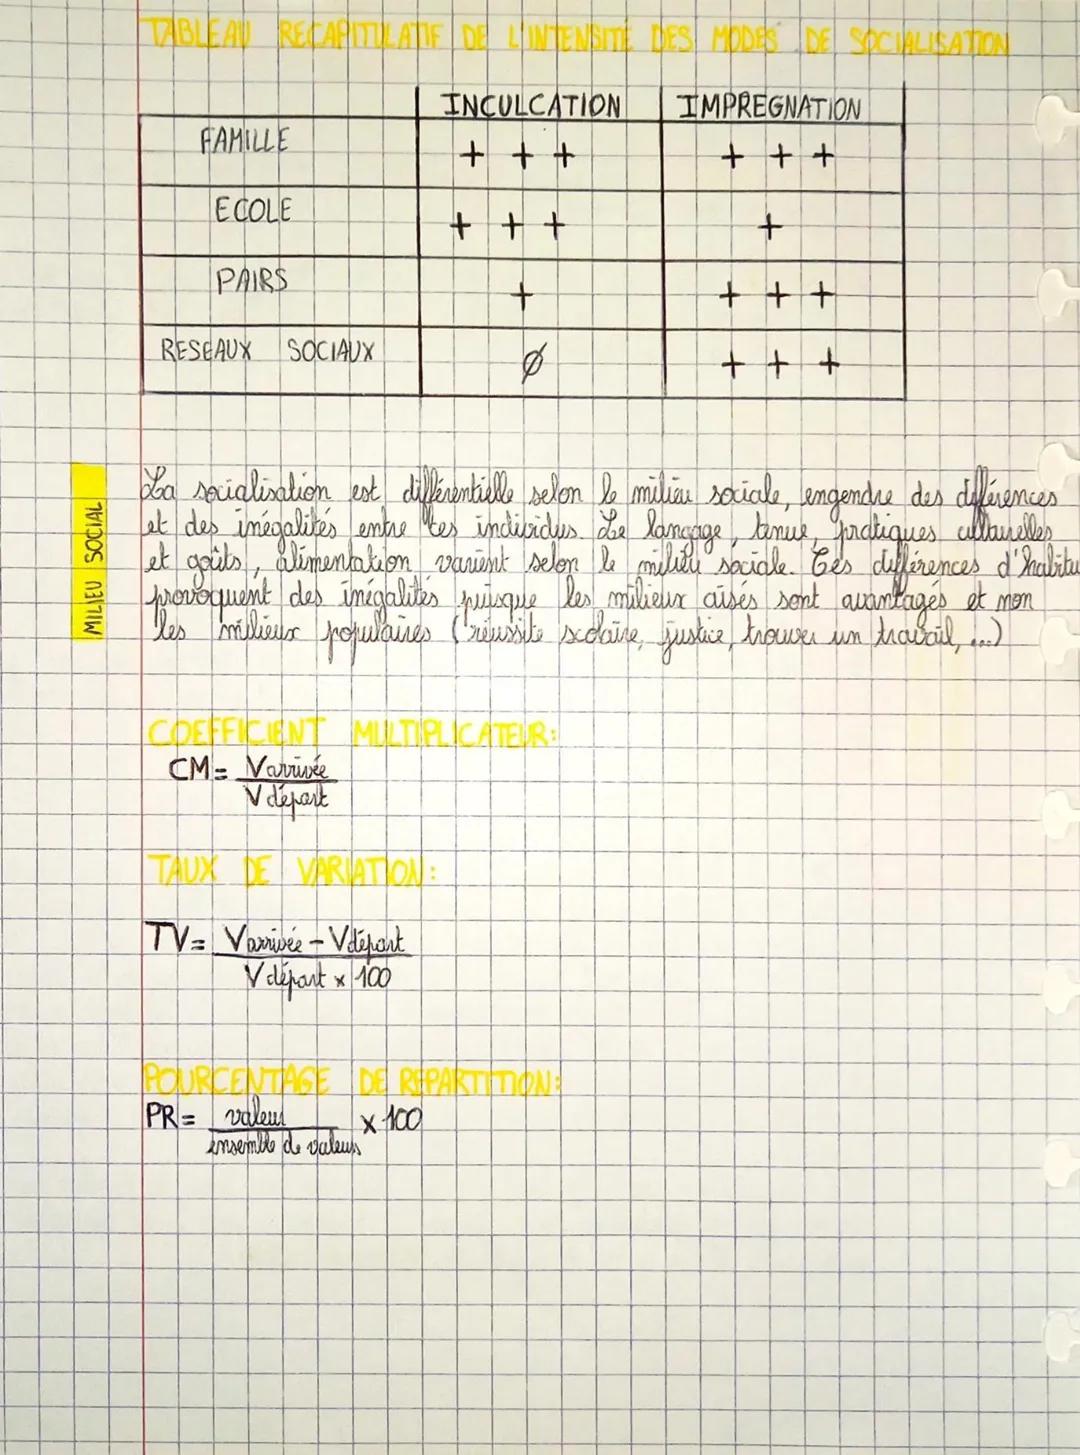 TABLEAU RECAPITULATIF DE L'INTENSITÉ DES MODES DE SOCIALISATION
INCULCATION IMPREGNATION
FAMILLE + + + + + +
ECOLE + + + +
PAIRS + + + +
RESEAUX SOCIAUX Ø + + +
MILIEU SOCIAL
La socialisation est différentielle selon le milieu sociale, engendre des différences
et des inégalités entre les individus. Le langage, tenue, pratiques culturelles
et goûts, alimentation varient selon le milieu sociale. Ces différences d'habitu
provoquent des inégalités puisque les milieux aisés sont avantagés et non
les milieux populaires (réussite scolaire, justice, trouver un travail, ...)
COEFFICIENT MULTIPLICATEUR:
CM= Varrivée
Vdépart
TAUX DE VARIATION:
TV= Varrivée - Vdépart
Vdépart x 100
POURCENTAGE DE REPARTITION:
PR= valeur x 100
ensemble de valeurs